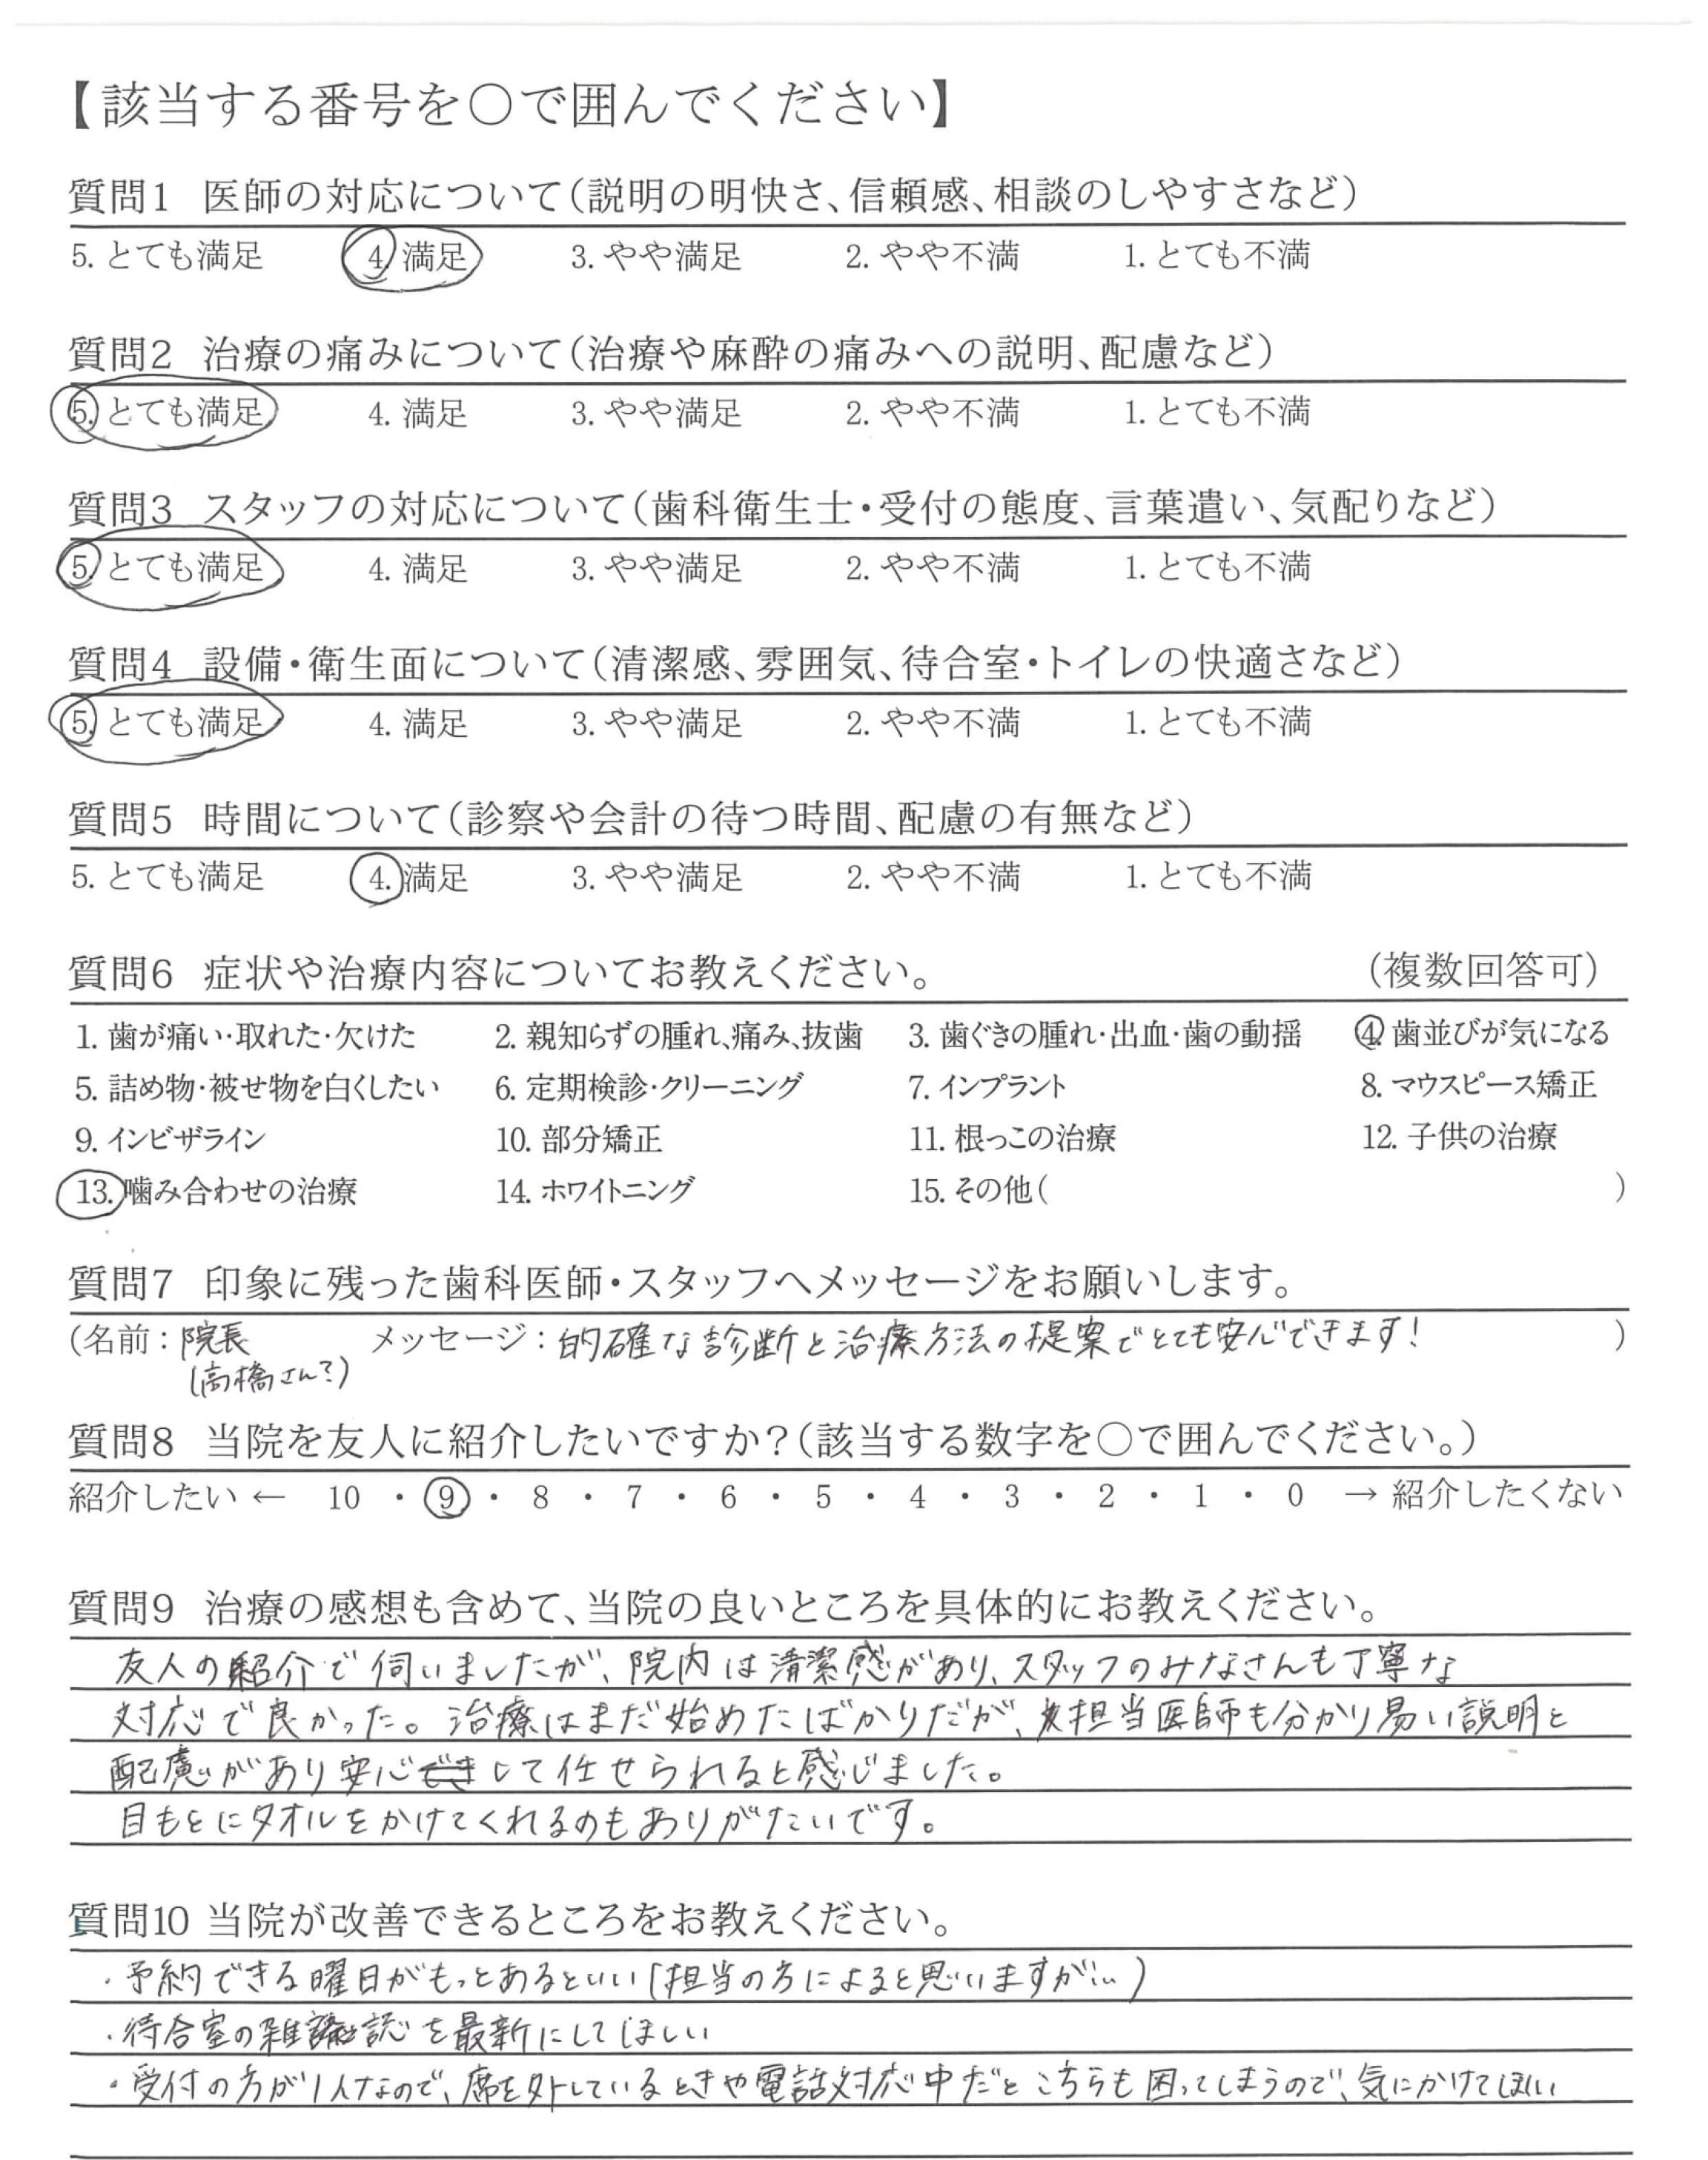 【該当する番号を○で囲んでください】
質問1 医師の対応について（説明の明快さ、信頼感、相談のしやすさなど）
5. とても満足 4. 満足 3. やや満足 2. やや不満 1. とても不満
質問2 治療の痛みについて（治療や麻酔の痛みへの説明、配慮など）
5. とても満足 4. 満足 3. やや満足 2. やや不満 1. とても不満
質問3 スタッフの対応について（歯科衛生士・受付の態度、言葉遣い、気配りなど）
5. とても満足 4. 満足 3. やや満足 2. やや不満 1. とても不満
質問4 設備・衛生面について（清潔感、雰囲気、待合室・トイレの快適さなど）
5. とても満足 4. 満足 3. やや満足 2. やや不満 1. とても不満
質問5 時間について（診察や会計の待つ時間、配慮の有無など）
5. とても満足 4. 満足 3. やや満足 2. やや不満 1. とても不満
質問6 症状や治療内容についてお教えください。 （複数回答可）
1. 歯が痛い・取れた・欠けた 2. 親知らずの腫れ、痛み、抜歯 3. 歯ぐきの腫れ・出血・歯の動揺 4. 歯並びが気になる
5. 詰め物・被せ物を白くしたい 6. 定期検診・クリーニング 7. インプラント 8. マウスピース矯正
9. インビザライン 10. 部分矯正 11. 根っこの治療 12. 子供の治療
13. 噛み合わせの治療 14. ホワイトニング 15. その他（ ）
質問7 印象に残った歯科医師・スタッフへメッセージをお願いします。
（名前：院長 メッセージ：的確な診断と治療方法の提案でとても安心できます！ ）
(高橋さん?)
質問8 当院を友人に紹介したいですか？（該当する数字を○で囲んでください。）
紹介したい ← 10 ・ 9 ・ 8 ・ 7 ・ 6 ・ 5 ・ 4 ・ 3 ・ 2 ・ 1 ・ 0 → 紹介したくない
質問9 治療の感想も含めて、当院の良いところを具体的にお教えください。
友人の紹介で伺いましたが、院内は清潔感があり、スタッフのみなさんも丁寧な
対応で良かった。治療はまだ始めたばかりだが、担当医師も分かり易い説明と
配慮があり安心して任せられると感じました。
目もとにタオルをかけてくれるのもありがたいです。
質問10 当院が改善できるところをお教えください。
・予約できる曜日がもっとあるといい(担当の方によると思いますが…)
・待合室の雑誌を最新にしてほしい
・受付の方が1人なので、席を外しているときや電話対応中だとこちらも困ってしまうので、気にかけてほしい